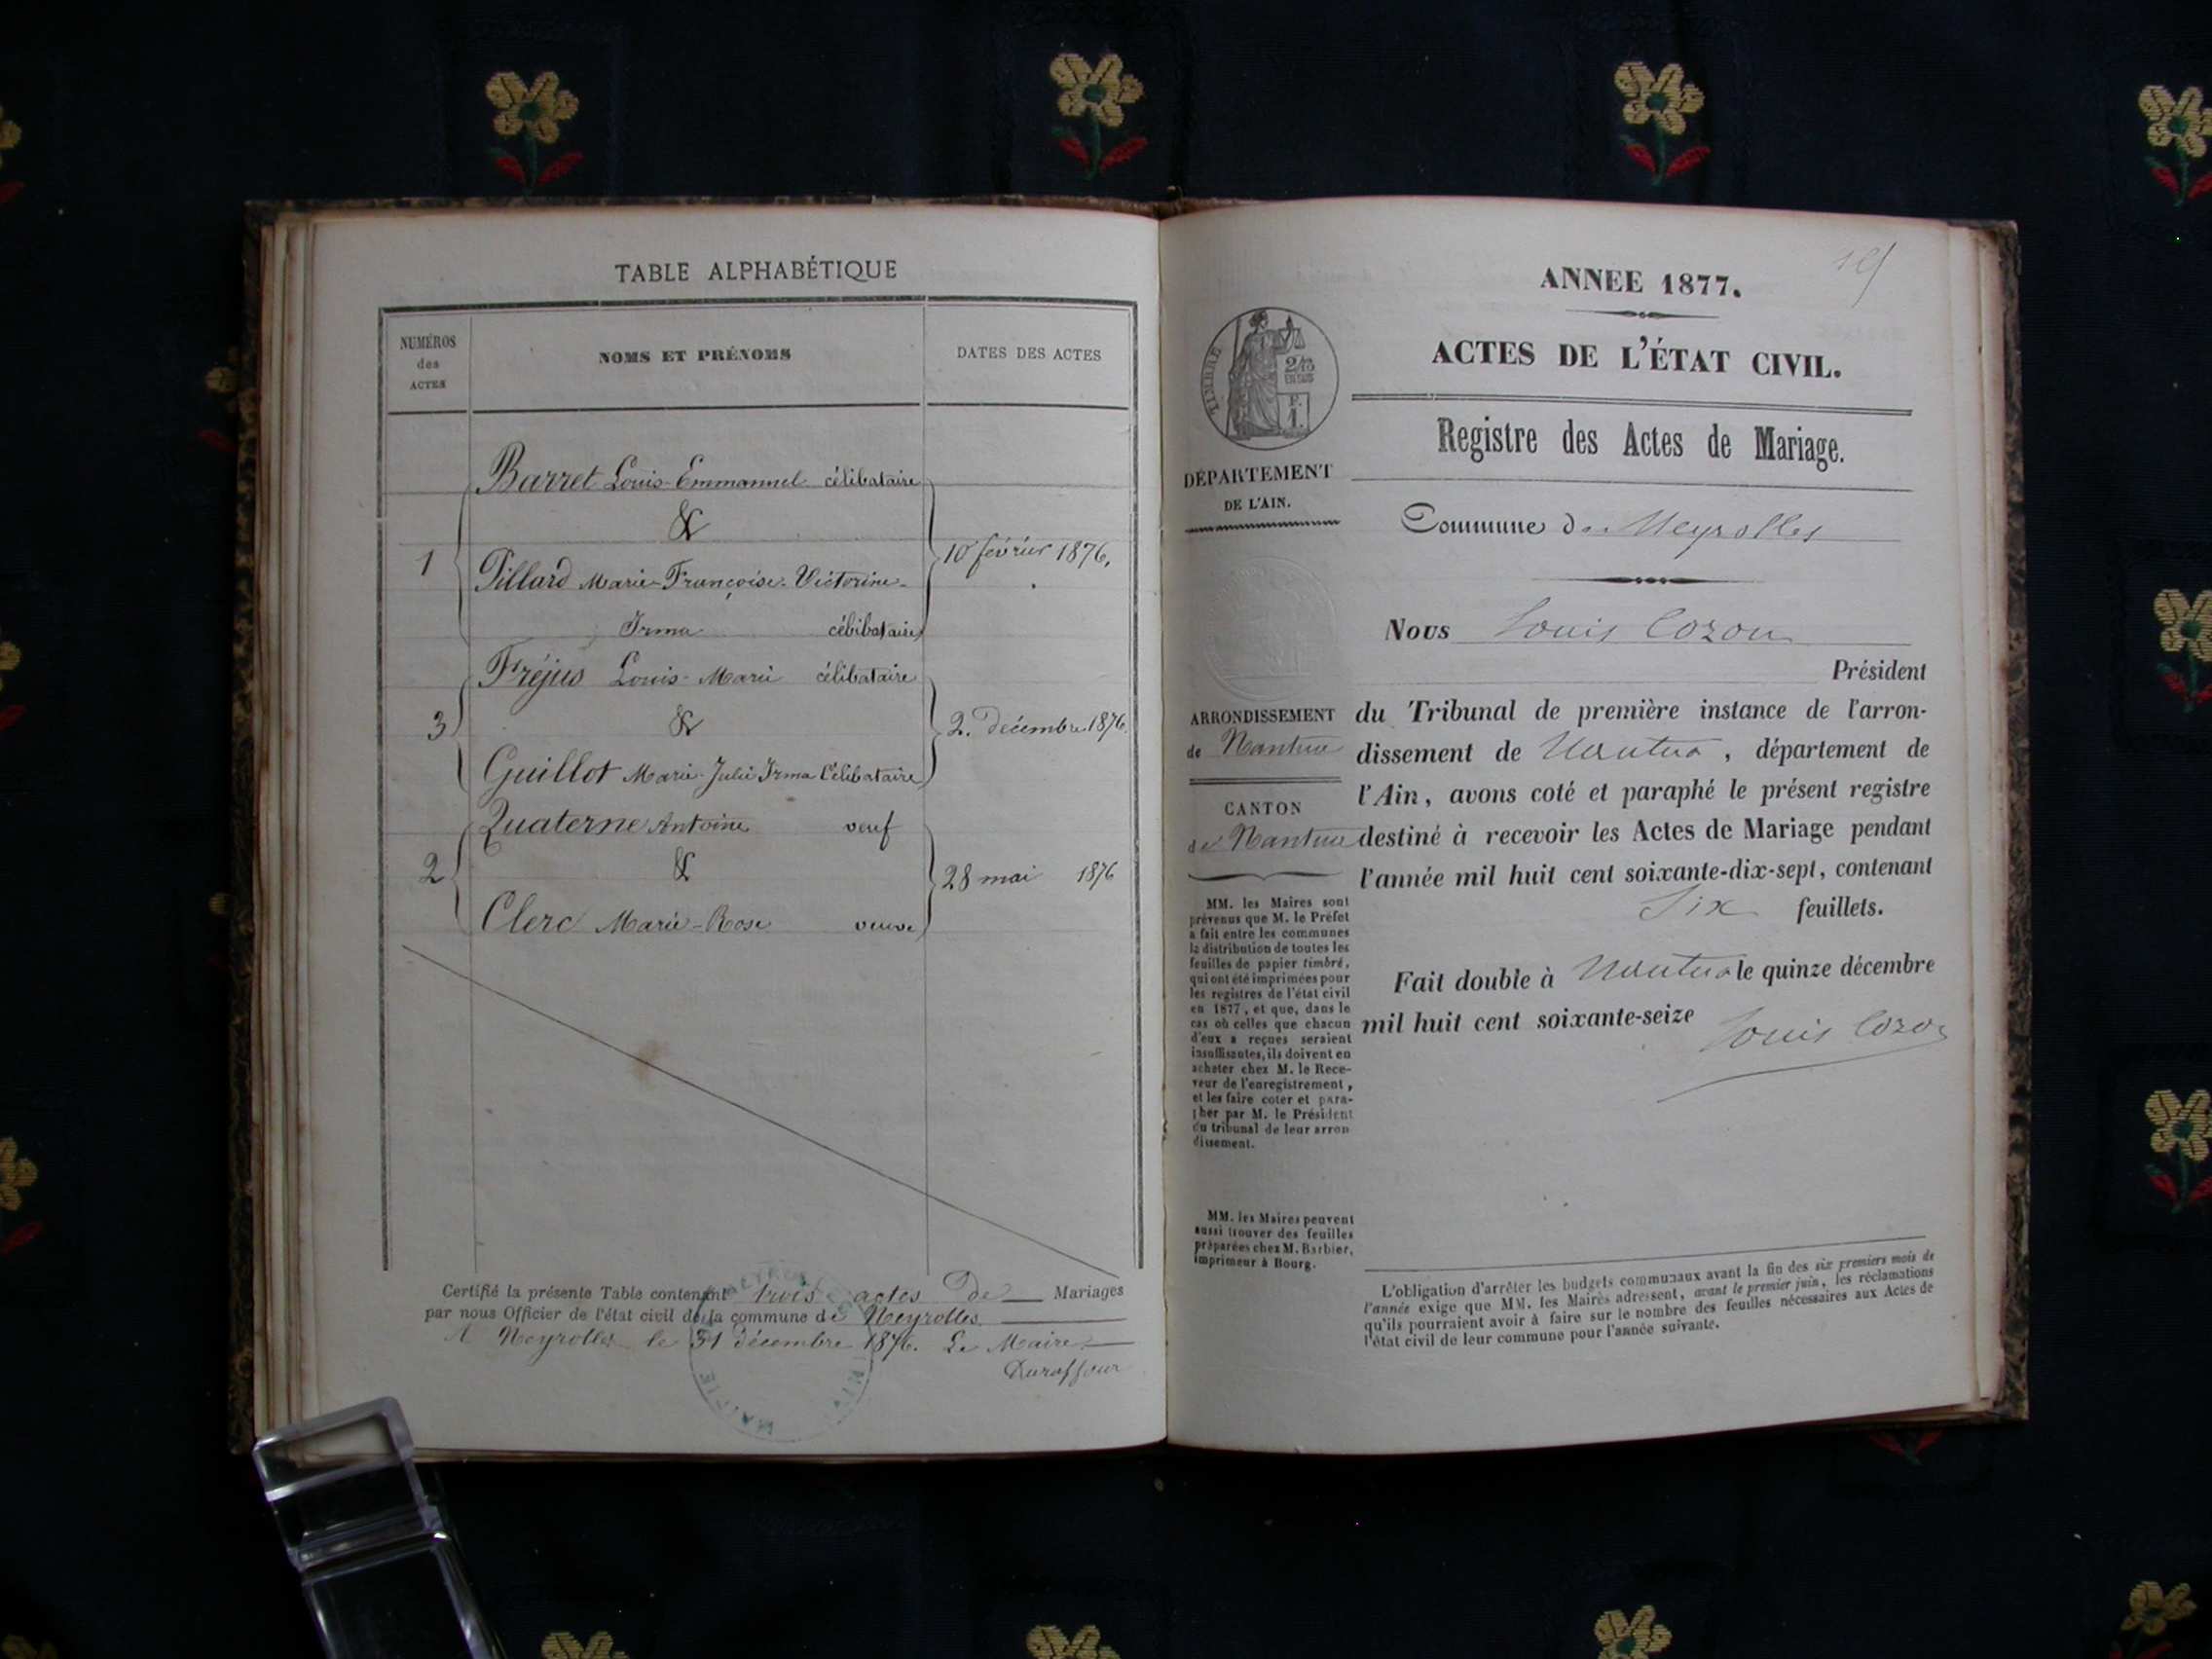 TABLE ALPHABÉTIQUE
NUMÉROS
des
ACTES
NOMS ET PRÉNOMS
DATES DES ACTES
Barret Louis-Emmanuel célibataire
&
1
Pillard Marie-Françoise-Victorine-
10 février 1876.
Irma célibataire
Fréjus Louis-Marie célibataire
3
&
2 décembre 1876.
Guillot Marie-Julie Irma Célibataire
Quaterne Antoine veuf
2
&
28 mai 1876
Clerc Marie-Rose veuve
Certifié la présente Table contenant trois actes de Mariages
par nous Officier de l'état civil de la commune de Neyrolles
A Neyrolles le 31 décembre 1876. Le Maire
Duraffour
MAIRIE
AIN
ANNEE 1877.
ACTES DE L'ÉTAT CIVIL.
TIMBRE
2/10
EN SUS
F.
1.
Registre des Actes de Mariage.
DÉPARTEMENT
DE L'AIN.
Commune de Neyrolles
Nous Louis Cozon
Président
ARRONDISSEMENT
de Nantua
CANTON
de Nantua
du Tribunal de première instance de l'arron-
dissement de Nantua, département de
l'Ain, avons coté et paraphé le présent registre
destiné à recevoir les Actes de Mariage pendant
l'année mil huit cent soixante-dix-sept, contenant
Six feuillets.
Fait double à Nantua le quinze décembre
mil huit cent soixante-seize
Louis Cozon
MM. les Maires sont
prévenus que M. le Préfet
a fait entre les communes
la distribution de toutes les
feuilles de papier timbré,
qui ont été imprimées pour
les registres de l'état civil
en 1877, et que, dans le
cas où celles que chacun
d'eux a reçues seraient
insuffisantes, ils doivent en
acheter chez M. le Rece-
veur de l'enregistrement,
et les faire coter et para-
pher par M. le Président
du tribunal de leur arron
dissement.
MM. les Maires peuvent
aussi trouver des feuilles
préparées chez M. Barbier,
imprimeur à Bourg.
L'obligation d'arrêter les budgets communaux avant la fin des six premiers mois de
l'année exige que MM. les Maires adressent, avant le premier juin, les réclamations
qu'ils pourraient avoir à faire sur le nombre des feuilles nécessaires aux Actes de
l'état civil de leur commune pour l'année suivante.